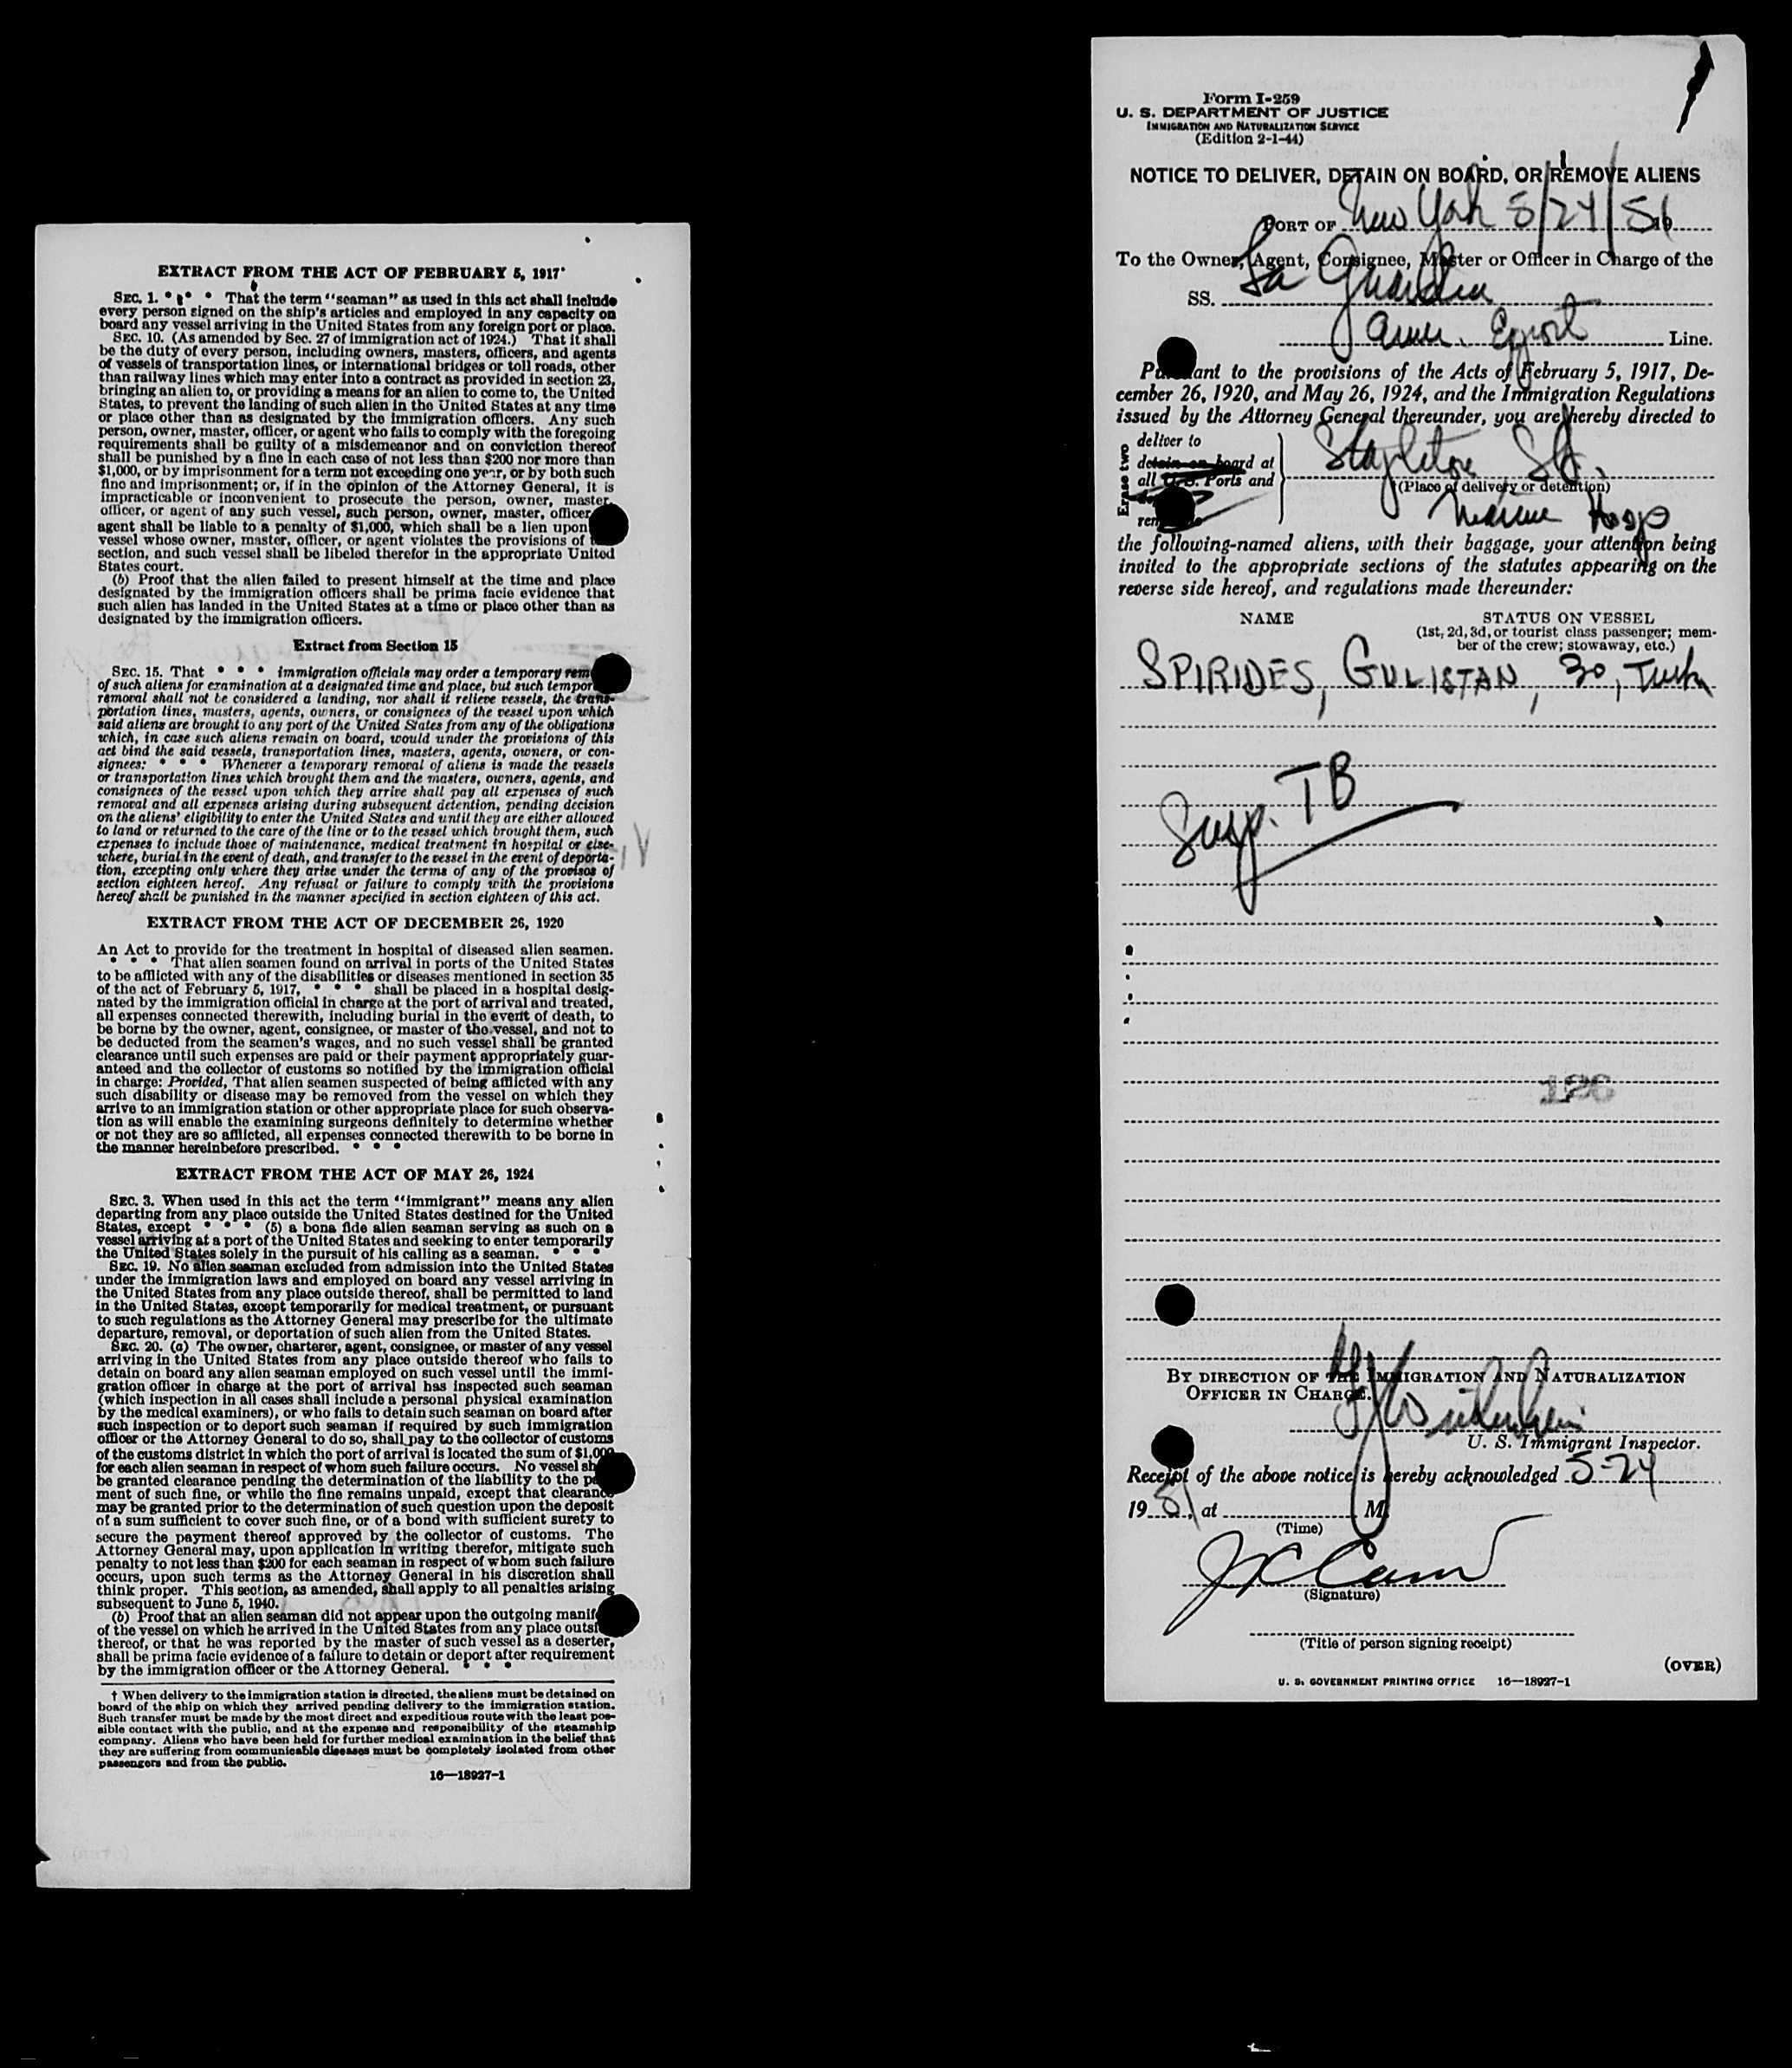 EXTRACT FROM THE ACT OF FEBRUARY 5, 1917
SEC. 1. * * * That the term "seaman" as used in this act shall include
every person signed on the ship's articles and employed in any capacity on
board any vessel arriving in the United States from any foreign port or place.
SEC. 10. (As amended by Sec. 27 of immigration act of 1924.) That it shall
be the duty of every person, including owners, masters, officers, and agents
of vessels of transportation lines, or international bridges or toll roads, other
than railway lines which may enter into a contract as provided in section 23,
bringing an alien to, or providing a means for an alien to come to, the United
States, to prevent the landing of such alien in the United States at any time
or place other than as designated by the immigration officers. Any such
person, owner, master, officer, or agent who fails to comply with the foregoing
requirements shall be guilty of a misdemeanor and on conviction thereof
shall be punished by a fine in each case of not less than $200 nor more than
$1,000, or by imprisonment for a term not exceeding one year, or by both such
fine and imprisonment; or, if in the opinion of the Attorney General, it is
impracticable or inconvenient to prosecute the person, owner, master,
officer, or agent of any such vessel, such person, owner, master, officer,
agent shall be liable to a penalty of $1,000, which shall be a lien upon
vessel whose owner, master, officer, or agent violates the provisions of
section, and such vessel shall be libeled therefor in the appropriate United
States court.
(b) Proof that the alien failed to present himself at the time and place
designated by the immigration officers shall be prima facie evidence that
such alien has landed in the United States at a time or place other than as
designated by the immigration officers.
Extract from Section 15
SEC. 15. That * * * immigration officials may order a temporary rem
of such aliens for examination at a designated time and place, but such tempor
removal shall not be considered a landing, nor shall it relieve vessels, the trans-
portation lines, masters, agents, owners, or consignees of the vessel upon which
said aliens are brought to any port of the United States from any of the obligations
which, in case such aliens remain on board, would under the provisions of this
act bind the said vessels, transportation lines, masters, agents, owners, or con-
signees: * * * Whenever a temporary removal of aliens is made the vessels
or transportation lines which brought them and the masters, owners, agents, and
consignees of the vessel upon which they arrive shall pay all expenses of such
removal and all expenses arising during subsequent detention, pending decision
on the aliens' eligibility to enter the United States and until they are either allowed
to land or returned to the care of the line or to the vessel which brought them, such
expenses to include those of maintenance, medical treatment in hospital or else-
where, burial in the event of death, and transfer to the vessel in the event of deporta-
tion, excepting only where they arise under the terms of any of the provisos of
section eighteen hereof. Any refusal or failure to comply with the provisions
hereof shall be punished in the manner specified in section eighteen of this act.
EXTRACT FROM THE ACT OF DECEMBER 26, 1920
An Act to provide for the treatment in hospital of diseased alien seamen.
* * * That alien seamen found on arrival in ports of the United States
to be afflicted with any of the disabilities or diseases mentioned in section 35
of the act of February 5, 1917, * * * shall be placed in a hospital desig-
nated by the immigration official in charge at the port of arrival and treated,
all expenses connected therewith, including burial in the event of death, to
be borne by the owner, agent, consignee, or master of the vessel, and not to
be deducted from the seamen's wages, and no such vessel shall be granted
clearance until such expenses are paid or their payment appropriately guar-
anteed and the collector of customs so notified by the immigration official
in charge: Provided, That alien seamen suspected of being afflicted with any
such disability or disease may be removed from the vessel on which they
arrive to an immigration station or other appropriate place for such observa-
tion as will enable the examining surgeons definitely to determine whether
or not they are so afflicted, all expenses connected therewith to be borne in
the manner hereinbefore prescribed. * * *
EXTRACT FROM THE ACT OF MAY 26, 1924
SEC. 3. When used in this act the term "immigrant" means any alien
departing from any place outside the United States destined for the United
States, except * * * (5) a bona fide alien seaman serving as such on a
vessel arriving at a port of the United States and seeking to enter temporarily
the United States solely in the pursuit of his calling as a seaman. * * *
SEC. 19. No alien seaman excluded from admission into the United States
under the immigration laws and employed on board any vessel arriving in
the United States from any place outside thereof, shall be permitted to land
in the United States, except temporarily for medical treatment, or pursuant
to such regulations as the Attorney General may prescribe for the ultimate
departure, removal, or deportation of such alien from the United States.
SEC. 20. (a) The owner, charterer, agent, consignee, or master of any vessel
arriving in the United States from any place outside thereof who fails to
detain on board any alien seaman employed on such vessel until the immi-
gration officer in charge at the port of arrival has inspected such seaman
(which inspection in all cases shall include a personal physical examination
by the medical examiners), or who fails to detain such seaman on board after
such inspection or to deport such seaman if required by such immigration
officer or the Attorney General to do so, shall pay to the collector of customs
of the customs district in which the port of arrival is located the sum of $1,000
for each alien seaman in respect of whom such failure occurs. No vessel sh
be granted clearance pending the determination of the liability to the p
ment of such fine, or while the fine remains unpaid, except that clearance
may be granted prior to the determination of such question upon the deposit
of a sum sufficient to cover such fine, or of a bond with sufficient surety to
secure the payment thereof approved by the collector of customs. The
Attorney General may, upon application in writing therefor, mitigate such
penalty to not less than $200 for each seaman in respect of whom such failure
occurs, upon such terms as the Attorney General in his discretion shall
think proper. This section, as amended, shall apply to all penalties arising
subsequent to June 5, 1940.
(b) Proof that an alien seaman did not appear upon the outgoing manif
of the vessel on which he arrived in the United States from any place outsi
thereof, or that he was reported by the master of such vessel as a deserter,
shall be prima facie evidence of a failure to detain or deport after requirement
by the immigration officer or the Attorney General. * * *
† When delivery to the immigration station is directed, the aliens must be detained on
board of the ship on which they arrived pending delivery to the immigration station.
Such transfer must be made by the most direct and expeditious route with the least pos-
sible contact with the public, and at the expense and responsibility of the steamship
company. Aliens who have been held for further medical examination in the belief that
they are suffering from communicable diseases must be completely isolated from other
passengers and from the public.
16—18927-1
Form I-259
U. S. DEPARTMENT OF JUSTICE
IMMIGRATION AND NATURALIZATION SERVICE
(Edition 2-1-44)
NOTICE TO DELIVER, DETAIN ON BOARD, OR REMOVE ALIENS
PORT OF New York 5/24/51 19
To the Owner, Agent, Consignee, Master or Officer in Charge of the
SS. La Guardia
Amer. Export Line.
Pursuant to the provisions of the Acts of February 5, 1917, De-
cember 26, 1920, and May 26, 1924, and the Immigration Regulations
issued by the Attorney General thereunder, you are hereby directed to
Erase two
deliver to
detain on board at
all U. S. Ports and
Stapleton SI.
(Place of delivery or detention)
Marine Hosp
the following-named aliens, with their baggage, your attention being
invited to the appropriate sections of the statutes appearing on the
reverse side hereof, and regulations made thereunder:
NAME STATUS ON VESSEL
(1st, 2d, 3d, or tourist class passenger; mem-
ber of the crew; stowaway, etc.)
SPIRIDES, GULISTAN, 30, Turk
Susp. TB
126
BY DIRECTION OF THE IMMIGRATION AND NATURALIZATION
OFFICER IN CHARGE.
U. S. Immigrant Inspector.
Receipt of the above notice is hereby acknowledged 5-24
1951, at M.
(Time)
(Signature)
(Title of person signing receipt)
(OVER)
U. S. GOVERNMENT PRINTING OFFICE 16—18927-1